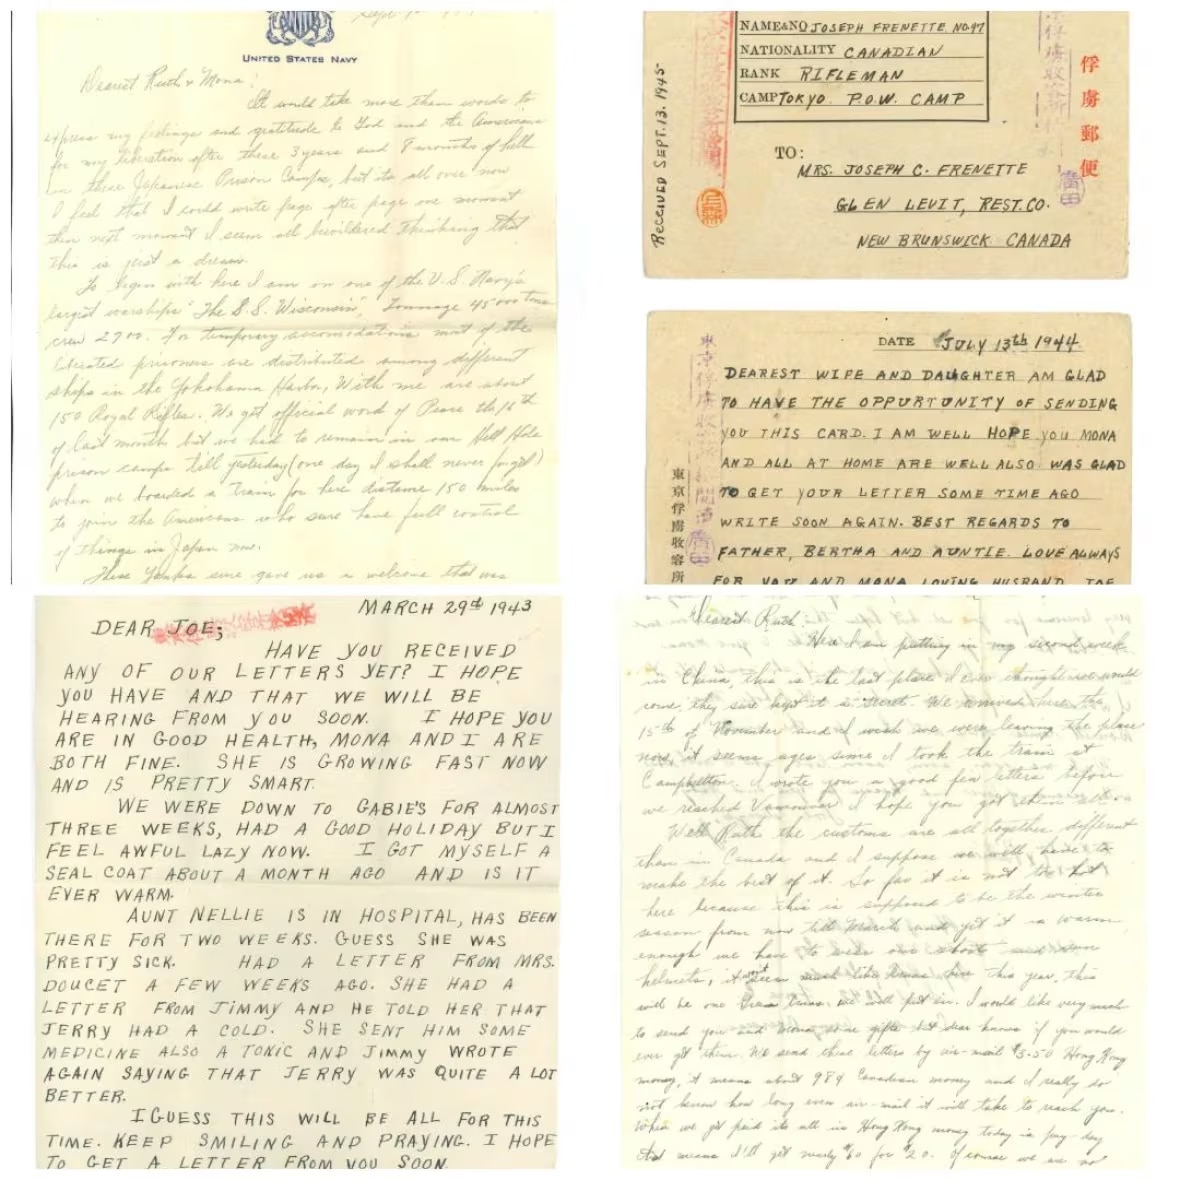 UNITED STATES NAVY
Dearest Ruth & Mona!
It would take more than words to
express my feelings and gratitude to God and the Americans
for my liberation after these 3 years and 8 months of hell
in these Japanese Prison Camps, but its all over now
I feel that I could write page after page one moment
then next moment I seem all bewildered thinking that
this is just a dream.
To begin with here I am on one of the U.S. Navy's
largest warships "The S.S. Wisconsin", Tonnage 45000 tons
crew 2700. For temporary accomodations most of the
liberated prisoners are distributed among different
ships in the Yokohama Harbor, With me are about
150 Royal Rifles. We got official word of Peace the
of last month but we had to remain in our Hell Hole
prison camps till yesterday (one day I shall never forget)
when we boarded a train for here distance 150 miles
to join the Americans who sure have full control
of things in Japan now.
These Yanks sure gave us a welcome that was
NAME&NO JOSEPH FRENETTE. NO.97
NATIONALITY CANADIAN
RANK RIFLEMAN
CAMP TOKYO P.O.W. CAMP
RECEIVED SEPT. 13. 1945
俘虜郵便
TO:
MRS. JOSEPH C. FRENETTE
GLEN LEVIT, REST. CO.
NEW BRUNSWICK CANADA
DATE JULY 13th 1944
DEAREST WIFE AND DAUGHTER AM GLAD
TO HAVE THE OPPURTUNITY OF SENDING
YOU THIS CARD. I AM WELL HOPE YOU MONA
AND ALL AT HOME ARE WELL ALSO. WAS GLAD
TO GET YOUR LETTER SOME TIME AGO
WRITE SOON AGAIN. BEST REGARDS TO
FATHER, BERTHA AND AUNTIE. LOVE ALWAYS
FOR YOU AND MONA LOVING HUSBAND JOE
東京俘虜收容所
MARCH 29th 1943
DEAR JOE;
HAVE YOU RECEIVED
ANY OF OUR LETTERS YET? I HOPE
YOU HAVE AND THAT WE WILL BE
HEARING FROM YOU SOON. I HOPE YOU
ARE IN GOOD HEALTH, MONA AND I ARE
BOTH FINE. SHE IS GROWING FAST NOW
AND IS PRETTY SMART.
WE WERE DOWN TO GABIE'S FOR ALMOST
THREE WEEKS, HAD A GOOD HOLIDAY BUT I
FEEL AWFUL LAZY NOW. I GOT MYSELF A
SEAL COAT ABOUT A MONTH AGO AND IS IT
EVER WARM.
AUNT NELLIE IS IN HOSPITAL, HAS BEEN
THERE FOR TWO WEEKS. GUESS SHE WAS
PRETTY SICK. HAD A LETTER FROM MRS.
DOUCET A FEW WEEKS AGO. SHE HAD A
LETTER FROM JIMMY AND HE TOLD HER THAT
JERRY HAD A COLD. SHE SENT HIM SOME
MEDICINE ALSO A TONIC AND JIMMY WROTE
AGAIN SAYING THAT JERRY WAS QUITE A LOT
BETTER.
I GUESS THIS WILL BE ALL FOR THIS
TIME. KEEP SMILING AND PRAYING. I HOPE
TO GET A LETTER FROM YOU SOON.
Dearest Ruth
Here I am putting in my second week
in China, this is the last place I ever thought we would
come, they sure kept it a secret. We arrived here the
15th of November and I wish we were leaving the place
now, it seems ages since I took the train at
Campbellton. I wrote you a good few letters before
we reached Vancouver I hope you got them
Well Ruth the customs are all together different
than in Canada and I suppose we will have to
make the best of it. So far it is not too hot
here because this is supposed to be the winter
season from now till March and yet it is warm
enough we have to wear our shorts and sun
helmets, it won't seem much like Xmas here this year, this
will be one Xmas we will put in. I would like very much
to send you and Mona some gifts but dear knows if you would
ever get them. We send these letters by air-mail $3.50 Hong Kong
money, it means about 98¢ Canadian money and I really do
not know how long even air-mail it will take to reach you.
When we get paid its all in Hong Kong money today is pay-day
that means I'll get nearly $60 for $20. Of course we are not